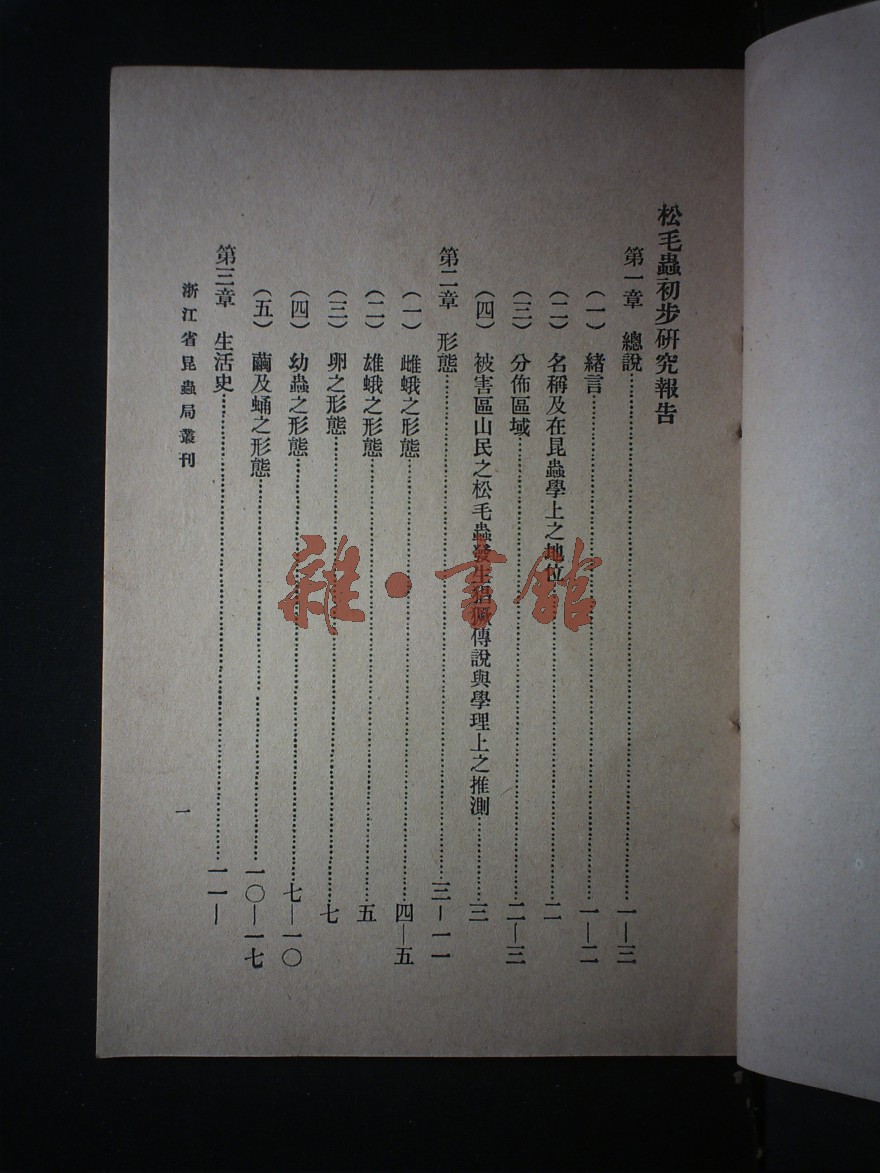 松毛蟲初步研究報告
第一章　總說……一—三
（一）　緒言……一—二
（二）　名稱及在昆蟲學上之地位……二
（三）　分佈區域……二—三
（四）　被害區山民之松毛蟲發生猖獗傳說與學理上之推測……三
第二章　形態……三—一一
（一）　雌蛾之形態……四—五
（二）　雄蛾之形態……五
（三）　卵之形態……七
（四）　幼蟲之形態……七—一〇
（五）　繭及蛹之形態……一〇—一七
第三章　生活史……一一—
浙江省昆蟲局叢刊
一
雜·書館